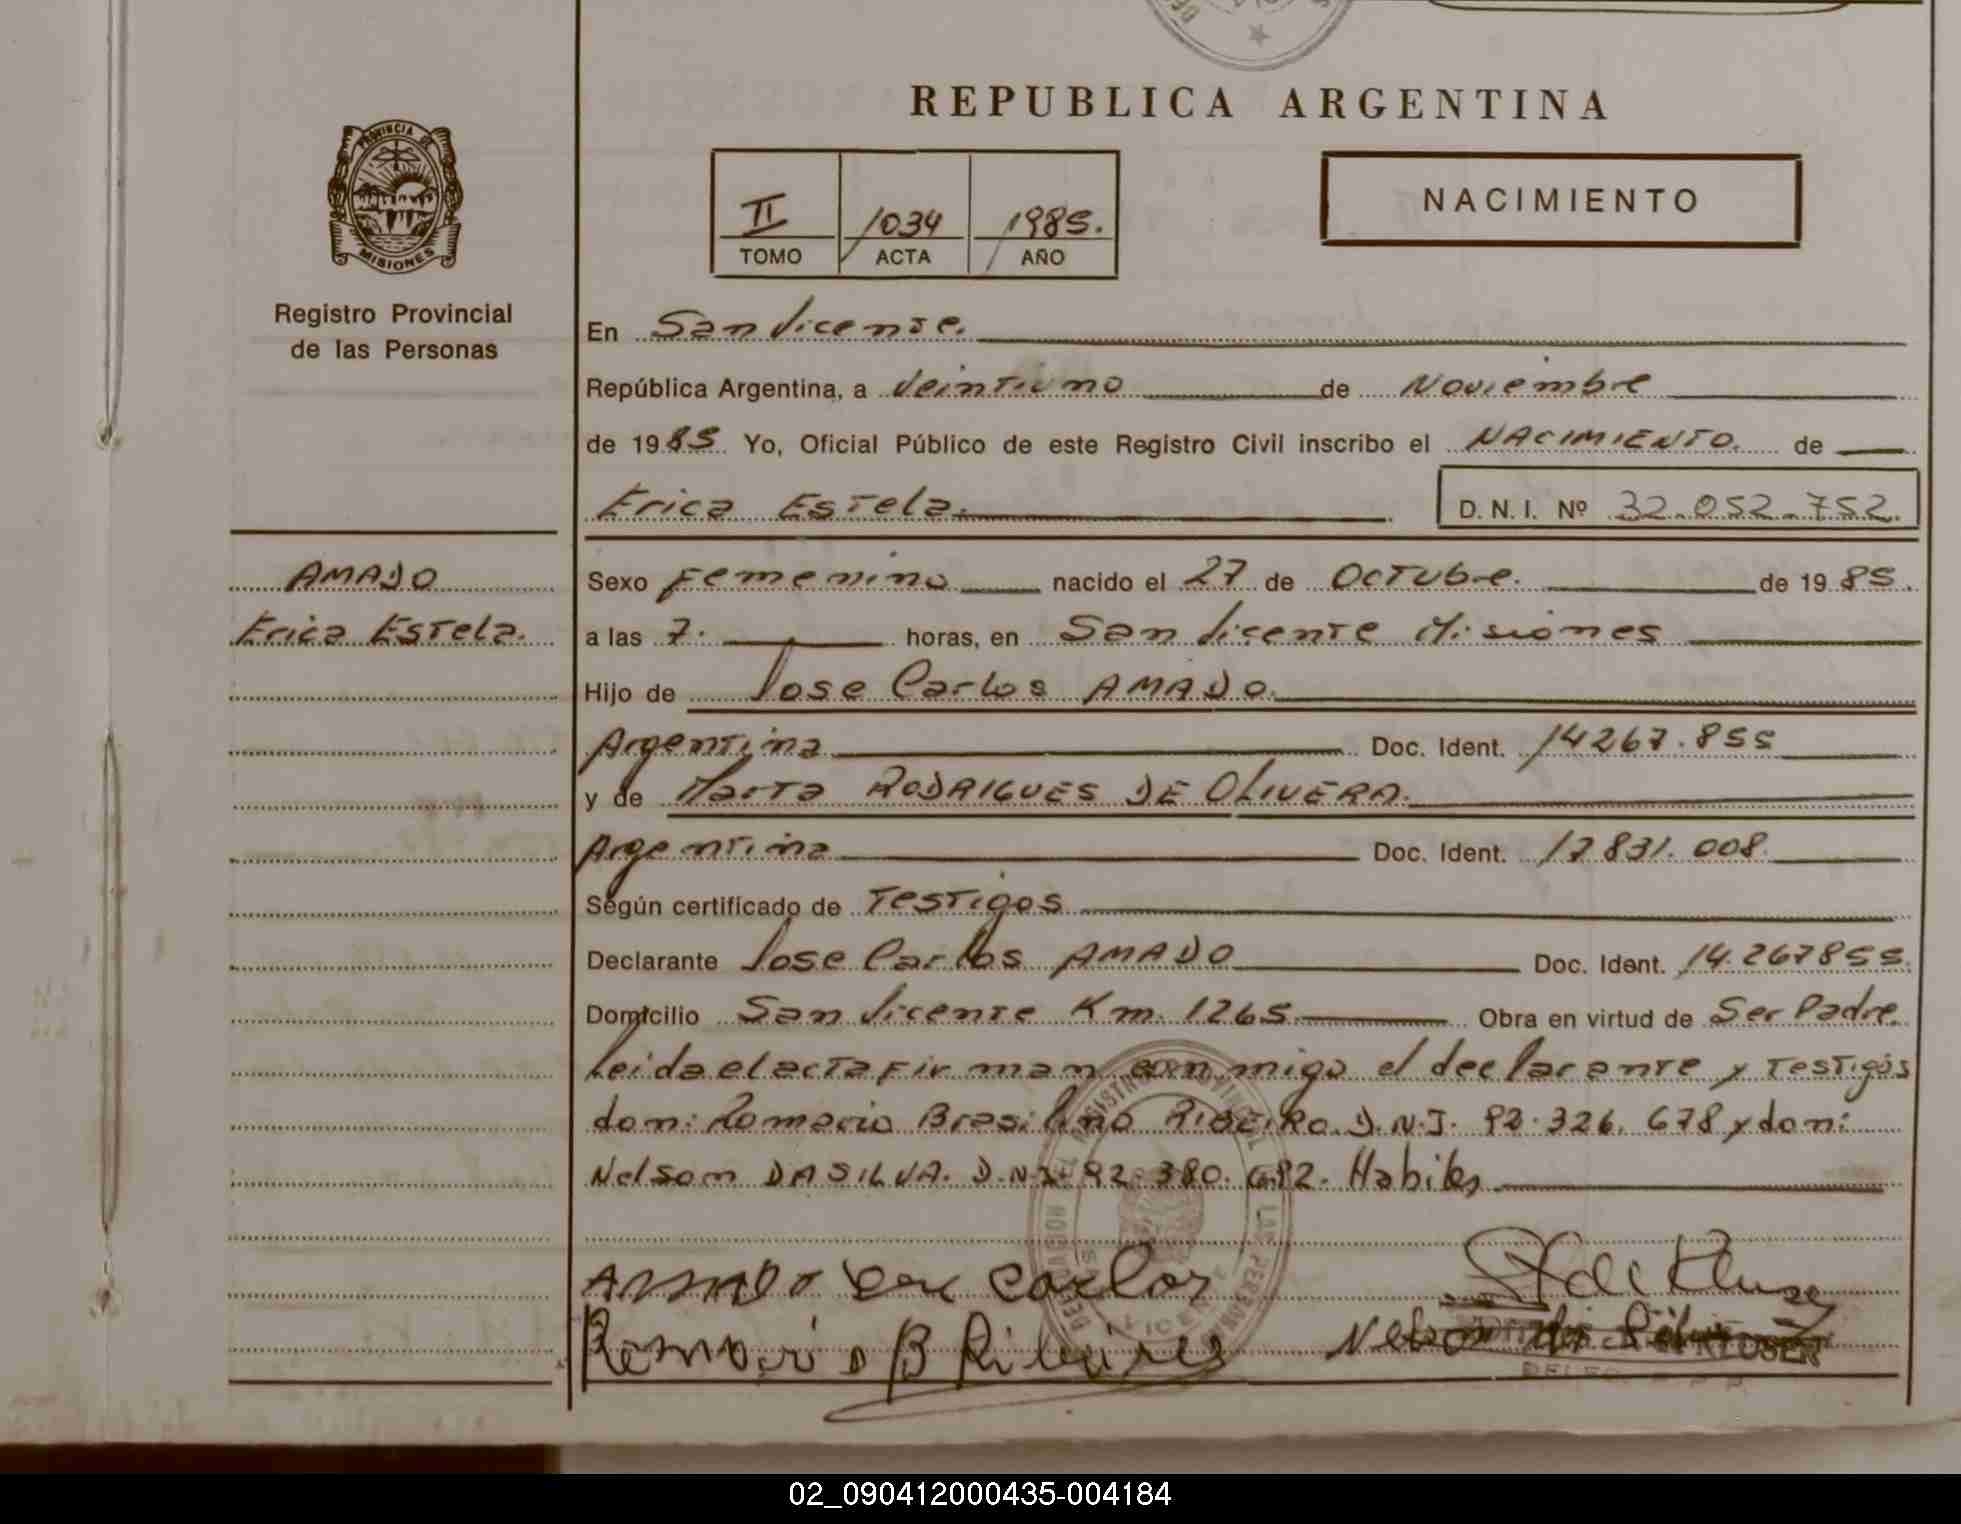 REPUBLICA ARGENTINA
PROVINCIA DE
MISIONES
Registro Provincial
de las Personas
II 1034 1985.
TOMO ACTA AÑO
NACIMIENTO
En San Vicente.
República Argentina, a Veintiuno de Noviembre
de 1985 Yo, Oficial Público de este Registro Civil inscribo el NACIMIENTO. de
Erica Estela. D. N. I. Nº 32.052.752.
AMADO
Erica Estela.
Sexo Femenino nacido el 27 de Octubre. de 1985.
a las 7. horas, en San Vicente Misiones
Hijo de Jose Carlos AMADO.
Argentina Doc. Ident. 14267.855
y de Marta RODRIGUES DE OLIVERA.
Argentina Doc. Ident. 17831.008.
Según certificado de Testigos
Declarante Jose Carlos AMADO Doc. Ident. 14.267855.
Domicilio San Vicente Km. 1265. Obra en virtud de Ser Padre.
Leida el acta firman conmigo el declarante y Testigos
don: Romario Brasilino RIBEIRO. D.N.I. 92.326.678 y don:
Nelson DA SILVA. D.N.I. 92.380.692. Habiles
AMADO Jose Carlos
B Ribeiro
Nelson da Silva
02_090412000435-004184